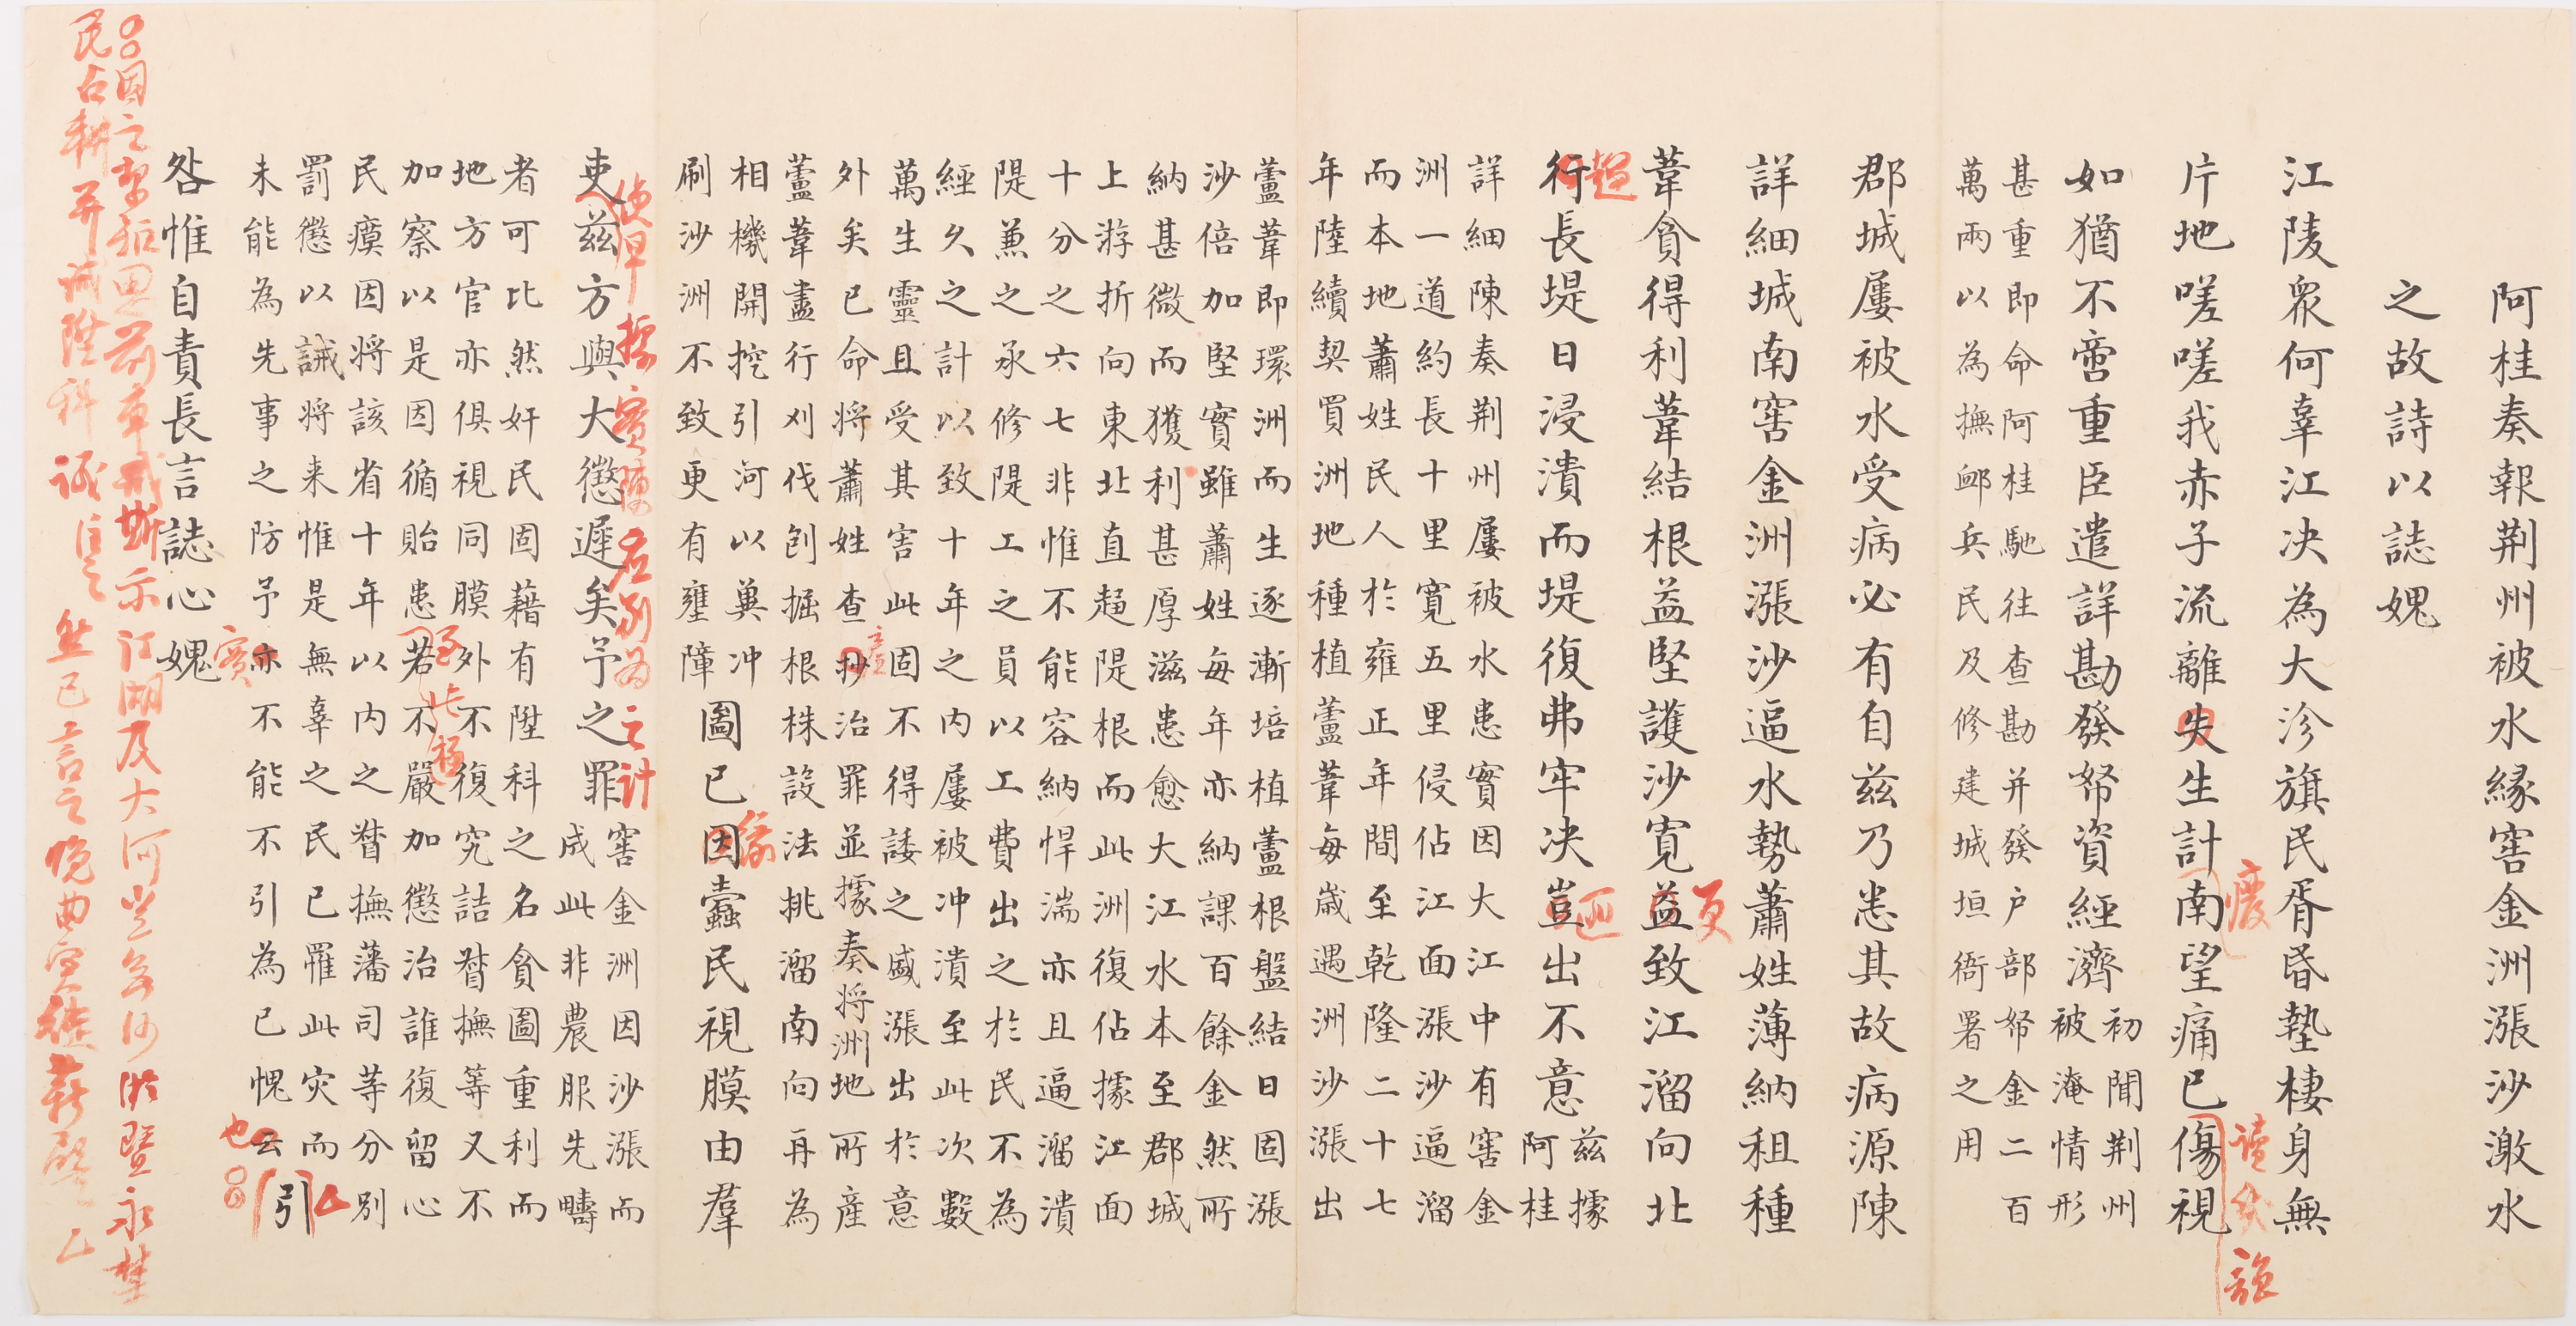 阿桂奏報荆州被水緣窖金洲漲沙激水
之故詩以誌媿
江陵衆何辜江决為大沴旗民胥昏墊棲身無
片地嗟嗟我赤子流離失生計南望痛已傷視
廢
讀矣
如猶不啻重臣遣詳勘發帑資經濟
初聞荆州
被淹情形
甚重即命阿桂馳往查勘并發户部帑金二百
萬兩以為撫䘏兵民及修建城垣衙署之用
郡城屢被水受病必有自兹乃悉其故病源陳
詳細城南窖金洲漲沙逼水勢蕭姓薄納租種
葦貪得利葦結根益堅護沙寛益致江溜向北
更
行長堤日浸潰而堤復弗牢决豈出不意
趨
兹據
阿桂
詳細陳奏荆州屢被水患實因大江中有窖金
洲一道約長十里寛五里侵佔江面漲沙逼溜
而本地蕭姓民人於雍正年間至乾隆二十七
年陸續契買洲地種植蘆葦每歲遇洲沙漲出
蘆葦即環洲而生逐漸培植蘆根盤結日固漲
沙倍加堅實雖蕭姓每年亦納課百餘金然所
納甚微而獲利甚厚滋患愈大江水本至郡城
上游折向東北直趨隄根而此洲復佔據江面
十分之六七非惟不能容納悍湍亦且逼溜潰
隄兼之承修隄工之員以工費出之於民不為
經久之計以致十年之内屢被冲潰至此次數
萬生靈且受其害此固不得諉之盛漲出於意
外矣已命將蕭姓查抄治罪並據奏將洲地所産
產
蘆葦盡行刈伐刨掘根株設法挑溜南向再為
相機開挖引河以冀冲
刷沙洲不致更有壅障
圖已因蠹民視膜由羣
緣
吏兹方與大懲遲矣予之罪
使早據實陳名別為之計
窖金洲因沙漲而
成此非農服先疇
者可比然奸民固藉有陞科之名貪圖重利而
地方官亦俱視同膜外不復究詰督撫等又不
加察以是因循貽患若不嚴加懲治誰復留心
至此極
民瘼因將該省十年以内之督撫藩司等分别
罰懲以誡將来惟是無辜之民已罹此灾而
未能為先事之防予亦不能不引為已愧云
實
也
引
咎惟自責長言誌心媿
因之
前車戒斯示江湖及大河
民占耕并誡陞科誠
已言之